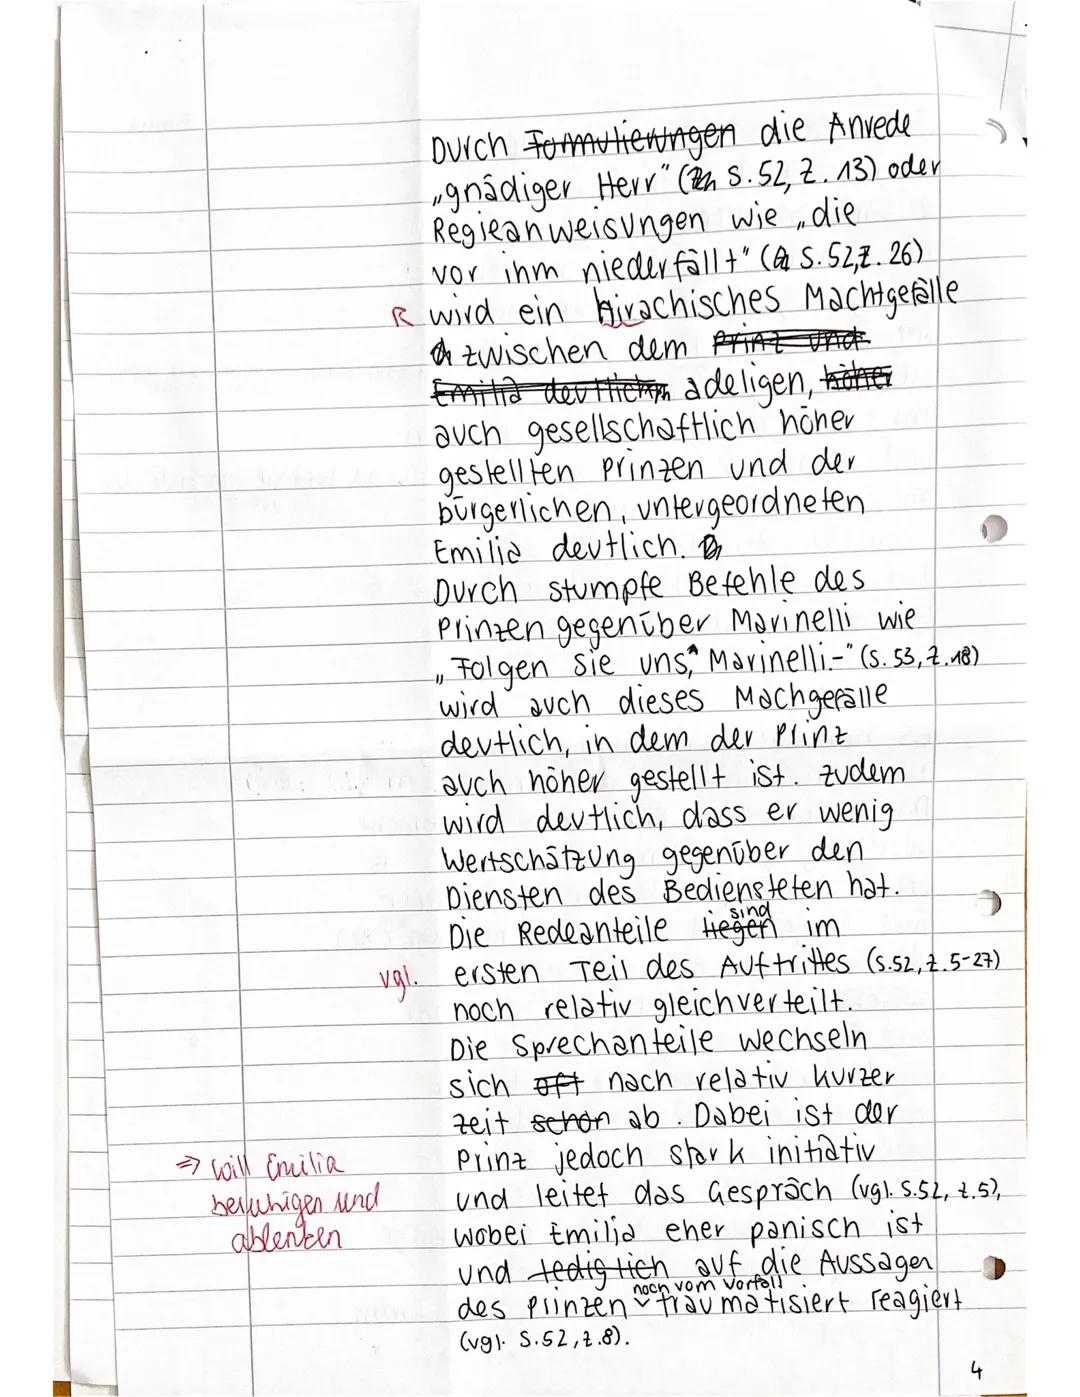 Durch Formulierungen die Anrede
„gnädiger Herr" (Zn S.52, Z. 13) oder
Regieanweisungen wie „die
vor ihm niederfällt" (S.52, Z. 26)
R wird ein hirachisches Machtgefälle
zwischen dem Prinz und
Emilia deutlich adeligen, höher
auch gesellschaftlich höher
gestellten Prinzen und der
bürgerlichen, untergeordneten
Emilia deutlich.
Durch stumpfe Befehle des
Prinzen gegenüber Marinelli wie
„Folgen Sie uns, Marinelli.-" (S. 53, Z. 18)
wird auch dieses Machgefälle
deutlich, in dem der Prinz
auch höher gestellt ist. Zudem
wird deutlich, dass er wenig
Wertschätzung gegenüber den
Diensten des Bediensteten hat.
Die Redeanteile liegen sind im
vgl. ersten Teil des Auftrittes (S.52, Z. 5-27)
noch relativ gleichverteilt.
Die Sprechanteile wechseln
sich oft nach relativ kurzer
Zeit schon ab. Dabei ist der
Prinz jedoch stark initiativ
und leitet das Gespräch (vgl. S.52, Z.5),
wobei Emilia eher panisch ist
und lediglich auf die Aussagen
des Prinzen noch vom Vorfall traumatisiert reagiert
(vgl. S.52, Z.8).
⇒ will Emilia
beruhigen und
ablenken
4